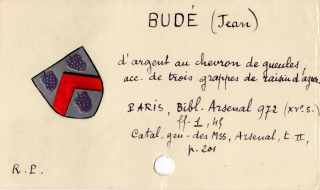 BUDÉ (Jean)
d'argent au chevron de gueules,
acc. de trois grappes de raisin d'azur.
PARIS, Bibl. Arsenal 972 (XVe s.)
ff. 1, 45
Catal. gen. des Mss, Arsenal, t. II,
p. 201
R.P.